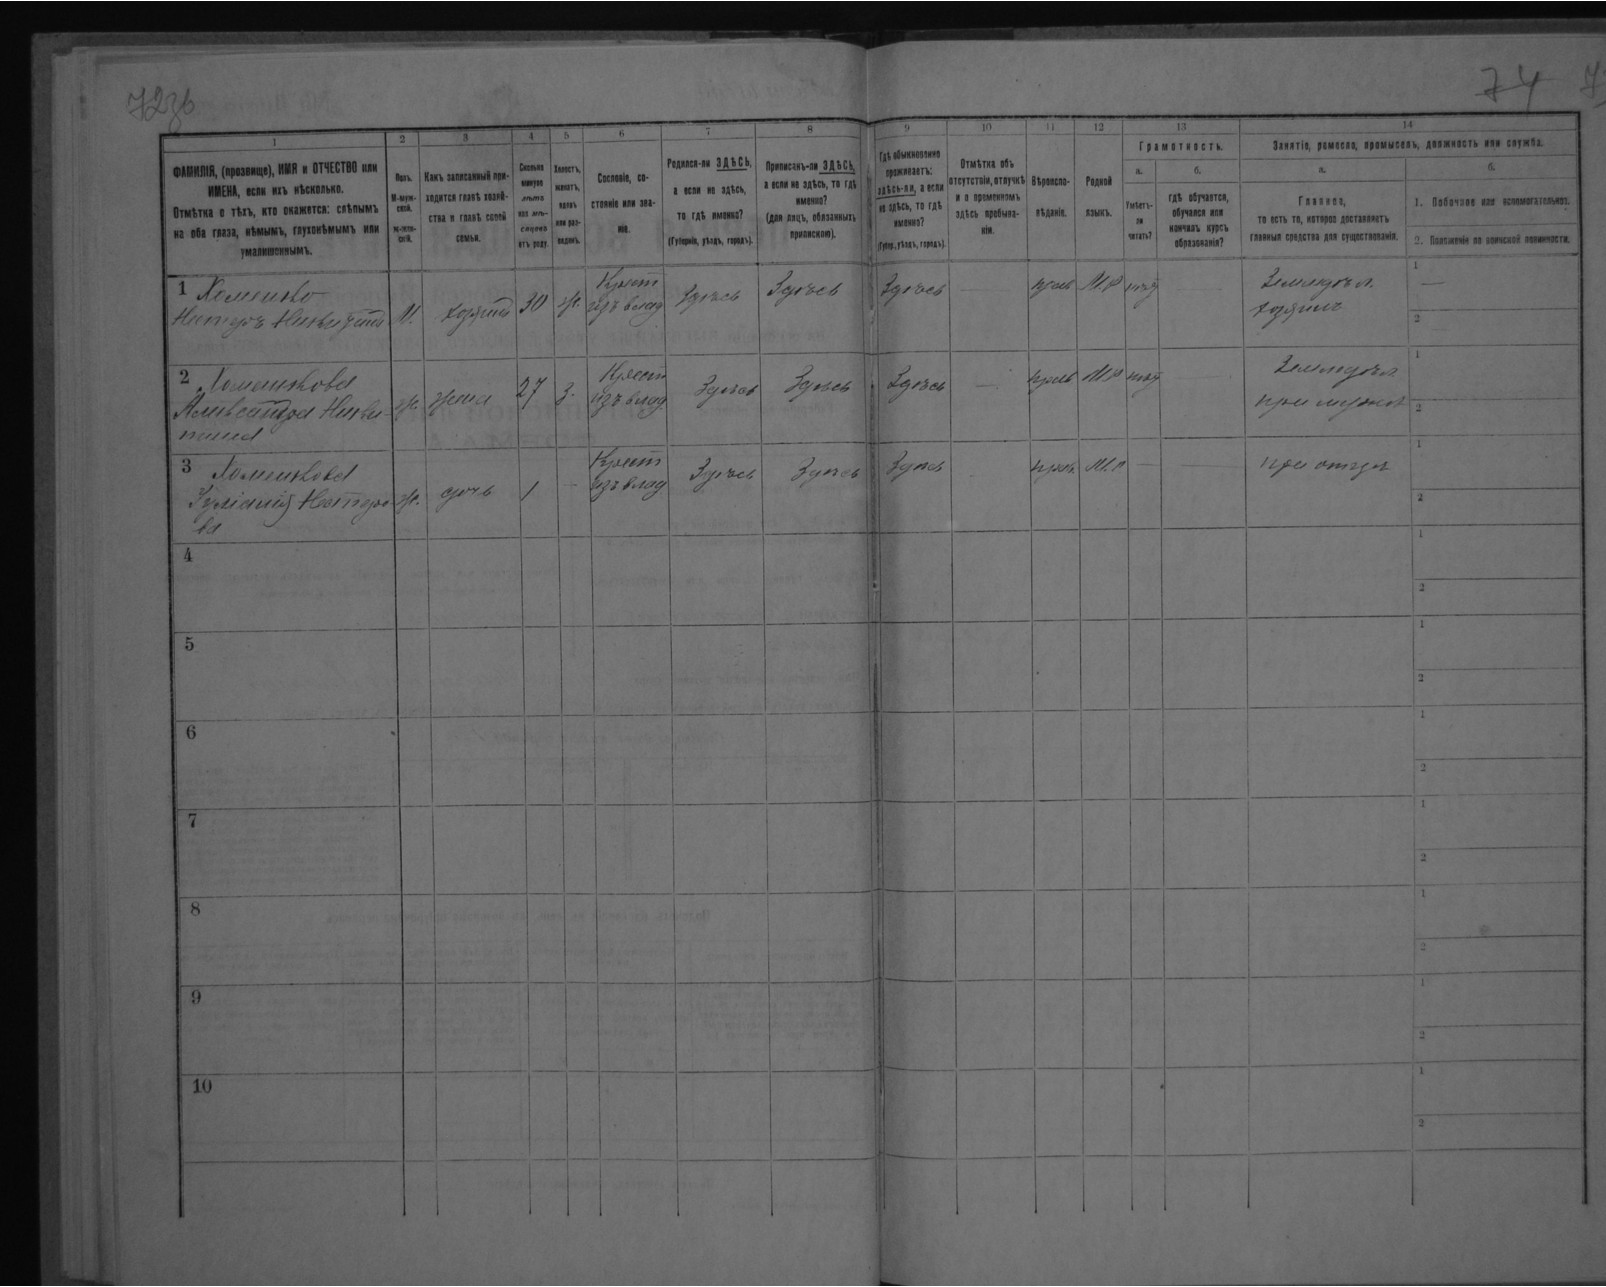 72об
74
1
2
3
4
5
6
7
8
9
10
11
12
13
14
ФАМИЛІЯ, (прозвище), ИМЯ и ОТЧЕСТВО или
ИМЕНА, если ихъ нѣсколько.
Отмѣтка о тѣхъ, кто окажется: слѣпымъ
на оба глаза, нѣмымъ, глухонѣмымъ или
умалишоннымъ.
Полъ.
М-муж-
ской.
Ж-жен-
скій.
Какъ записанный при-
ходится главѣ хозяй-
ства и главѣ своей
семьи.
Сколько
минуло
лѣтъ
или мѣ-
сяцевъ
отъ роду.
Холостъ,
женатъ,
вдовъ
или раз-
веденъ.
Сословіе, со-
стояніе или зва-
ніе.
Родился-ли ЗДѢСЬ,
а если не здѣсь,
то гдѣ именно?
(Губернія, уѣздъ, городъ).
Приписанъ-ли ЗДѢСЬ,
а если не здѣсь, то гдѣ
именно?
(для лицъ, обязанныхъ
припискою).
Гдѣ обыкновенно
проживаетъ:
здѣсь-ли, а если
не здѣсь, то гдѣ
именно?
(Губер., уѣздъ, городъ).
Отмѣтка объ
отсутствіи, отлучкѣ
и о временномъ
здѣсь пребыва-
ніи.
Вѣроиспо-
вѣданіе.
Родной
языкъ.
Грамотность.
а.
Умѣетъ-
ли
читать?
б.
гдѣ обучается,
обучался или
кончилъ курсъ
образованія?
Занятіе, ремесло, промыселъ, должность или служба.
а.
Главное,
то есть то, которое доставляетъ
главныя средства для существованія.
б.
1. Побочное или вспомогательное.
2. Положеніе по воинской повинности.
1 Хоменко
М.
30
ж.
Крест
изъ влад
Здѣсь
Здѣсь
Здѣсь
—
прав
М.Р
—
Земледѣл.
хозяинъ
1
—
2
2 Хоменкова
Александра Ники-
ж.
жена
27
з.
Крест
изъ влад
Здѣсь
Здѣсь
Здѣсь
—
прав
М.Р
—
Земледѣл
при мужѣ
1
2
3 Хоменкова
ж.
дочь
1
—
Крест
изъ влад
Здѣсь
Здѣсь
Здѣсь
прав
М.Р
—
—
при отцѣ
1
2
4
1
2
5
1
2
6
1
2
7
1
2
8
1
2
9
1
2
10
1
2